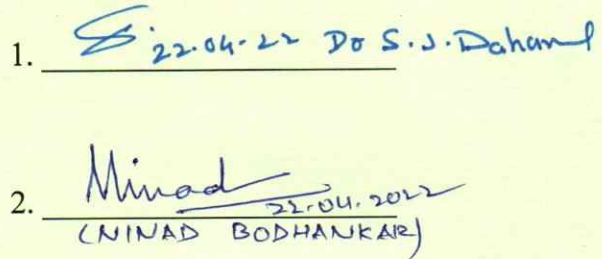 1. 22.04.22 Dr S.J. Dahare
2. Ninad
22.04.2022
(NINAD BODHANKAR)